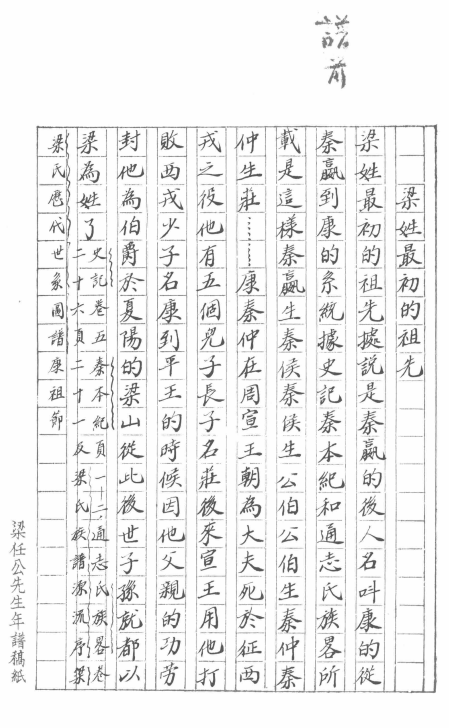 譜前
梁姓最初的祖先
梁姓最初的祖先據說是秦嬴的後人名叫康的從
秦嬴到康的系統據史記秦本紀和通志氏族畧所
載是這樣秦嬴生秦侯秦侯生公伯公伯生秦仲秦
仲生莊⋯⋯⋯康秦仲在周宣王朝為大夫死於征西
戎之役他有五個兒子長子名莊後來宣王用他打
敗西戎少子名康到平王的時候因他父親的功勞
封他為伯爵於夏陽的梁山從此後世子孫就都以
梁為姓了
史記卷五秦本紀頁一—二、通志氏族畧卷
二十六頁二十一反梁氏族譜源流序梁
梁氏歷代世系圖譜康祖節
梁任公先生年譜稿紙